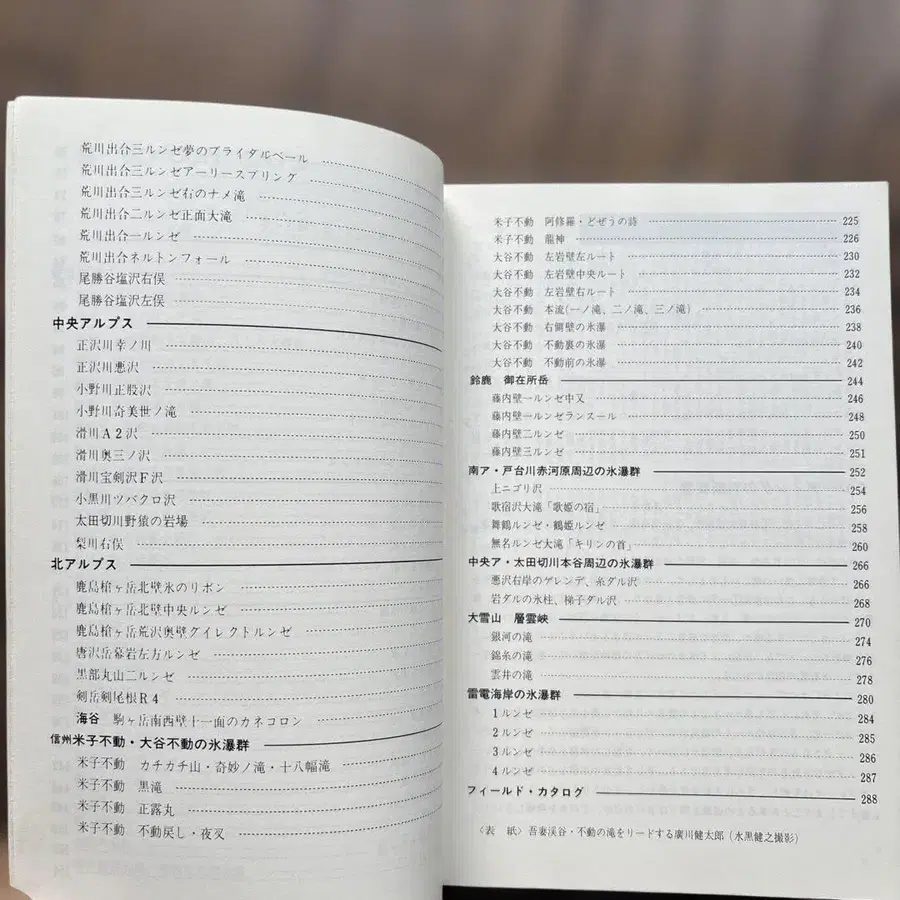 荒川出合三ルンゼ夢のブライダルベール
荒川出合三ルンゼアーリースプリング
荒川出合三ルンゼ右のナメ滝
荒川出合二ルンゼ正面大滝
荒川出合一ルンゼ
荒川出合ネルトンフォール
尾勝谷塩沢右俣
尾勝谷塩沢左俣
中央アルプス
正沢川幸ノ川
正沢川悪沢
小野川正股沢
小野川奇美世ノ滝
滑川A2沢
滑川奥三ノ沢
滑川宝剣沢F沢
小黒川ツバクロ沢
太田切川野猿の岩場
梨川右俣
北アルプス
鹿島槍ヶ岳北壁氷のリボン
鹿島槍ヶ岳北壁中央ルンゼ
鹿島槍ヶ岳荒沢奥壁ダイレクトルンゼ
唐沢岳幕岩左方ルンゼ
黒部丸山二ルンゼ
剣岳剣尾根R4
海谷 駒ヶ岳南西壁十一面のカネコロン
信州米子不動・大谷不動の氷瀑群
米子不動 カチカチ山・奇妙ノ滝・十八幅滝
米子不動 黒滝
米子不動 正露丸
米子不動 不動戻し・夜叉
米子不動 阿修羅・どぜうの詩 225
米子不動 龍神 226
大谷不動 左岩壁左ルート 230
大谷不動 左岩壁中央ルート 232
大谷不動 左岩壁右ルート 234
大谷不動 本流(一ノ滝、二ノ滝、三ノ滝) 236
大谷不動 右側壁の氷瀑 238
大谷不動 不動裏の氷瀑 240
大谷不動 不動前の氷瀑 242
鈴鹿 御在所岳 244
藤内壁一ルンゼ中又 246
藤内壁一ルンゼランスール 248
藤内壁二ルンゼ 250
藤内壁三ルンゼ 251
南ア・戸台川赤河原周辺の氷瀑群 252
上ニゴリ沢 254
歌宿沢大滝「歌姫の宿」 256
舞鶴ルンゼ・鶴姫ルンゼ 258
無名ルンゼ大滝「キリンの首」 260
中央ア・太田切川本谷周辺の氷瀑群 266
悪沢右岸のゲレンデ、糸ダル沢 266
岩ダルの氷柱、梯子ダル沢 268
大雪山 層雲峡 270
銀河の滝 274
錦糸の滝 276
雲井の滝 278
雷電海岸の氷瀑群 280
1ルンゼ 284
2ルンゼ 285
3ルンゼ 286
4ルンゼ 287
フィールド・カタログ 288
〈表 紙〉吾妻渓谷・不動の滝をリードする廣川健太郎(水黒健之撮影)